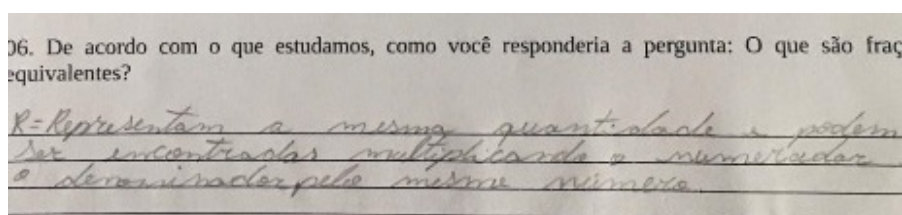 06. De acordo com o que estudamos, como você responderia a pergunta: O que são fraç
equivalentes?
R= Representam a mesma quantidade e podem
ser encontradas multiplicando o numerador
o denominador pelo mesmo número.